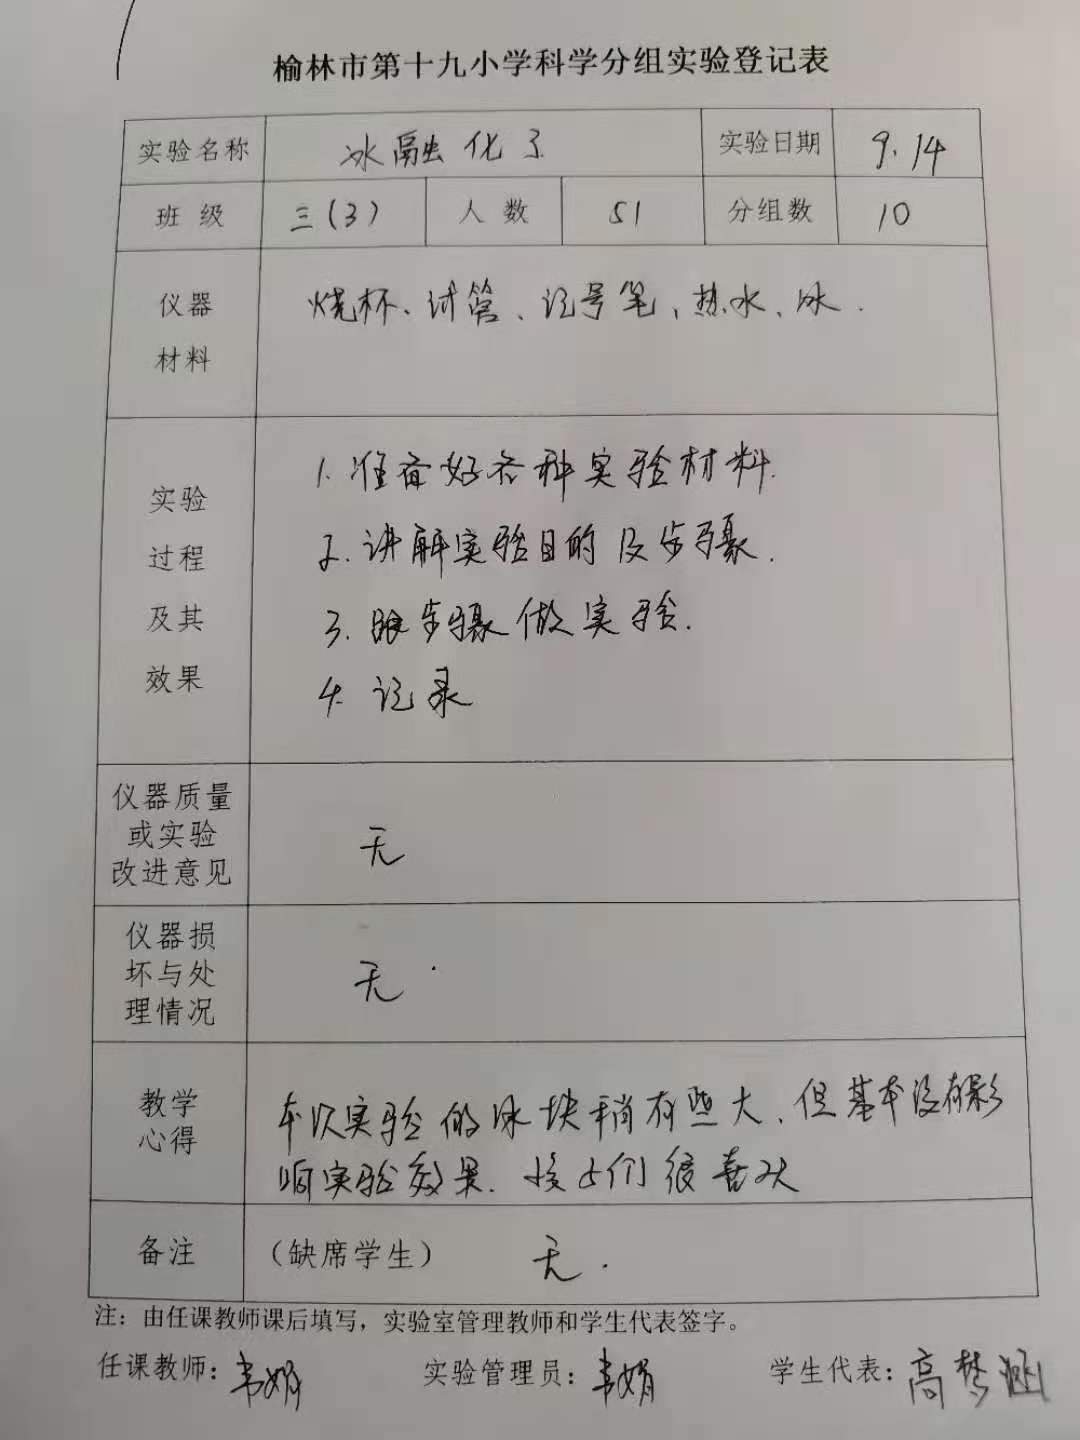 榆林市第十九小学科学分组实验登记表
实验名称 冰融化了 实验日期 9.14
班级 三(3) 人数 51 分组数 10
仪器
材料
烧杯、试管、记号笔、热水、冰.
实验
过程
及其
效果
1.准备好各种实验材料.
2.讲解实验目的及步骤.
3.跟步骤做实验.
4.记录
仪器质量
或实验
改进意见
无
仪器损
坏与处
理情况
无.
教学
心得
本次实验的冰块稍有些大,但基本没有影
响实验效果.孩子们很喜欢
备注 (缺席学生) 无.
注：由任课教师课后填写，实验室管理教师和学生代表签字。
任课教师：韦娟 实验管理员：韦娟 学生代表：高梦涵